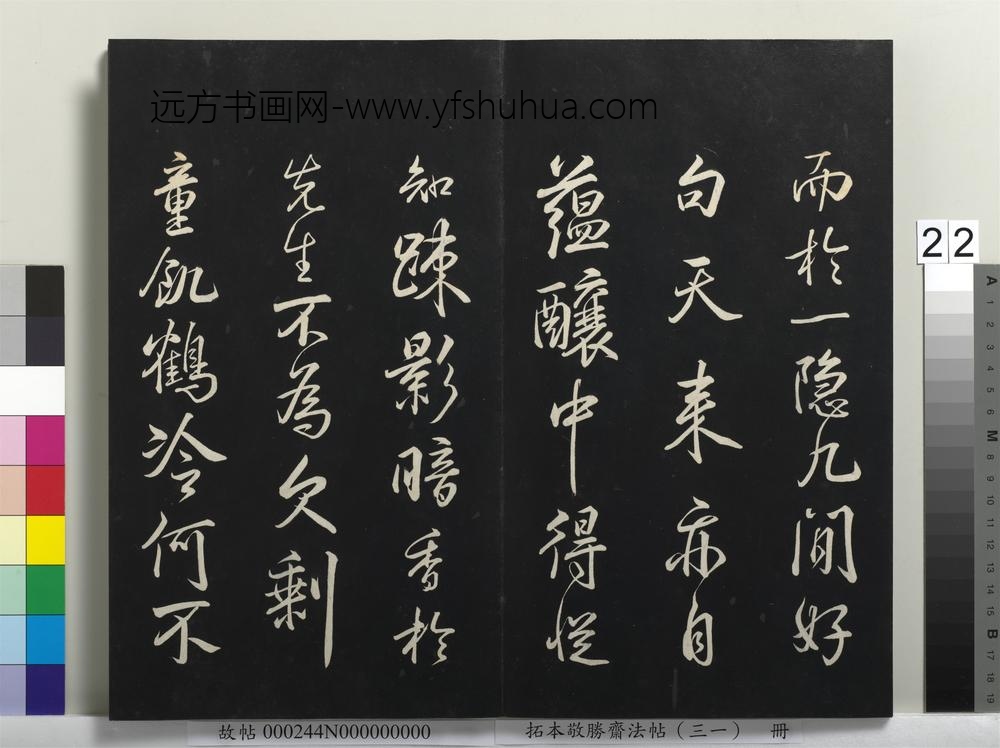 远方书画网-www.yfshuhua.com
而於一隐九間好
句天来亦自
蘊釀中得從
知踈影暗香於
先生不為欠剩
童飢鶴冷何不
22
A 1 2 3 4 5 6 M 8 9 10 11 12 13 14 15 B 17 18 19
故帖 000244N000000000
拓本敬勝齋法帖（三一） 冊